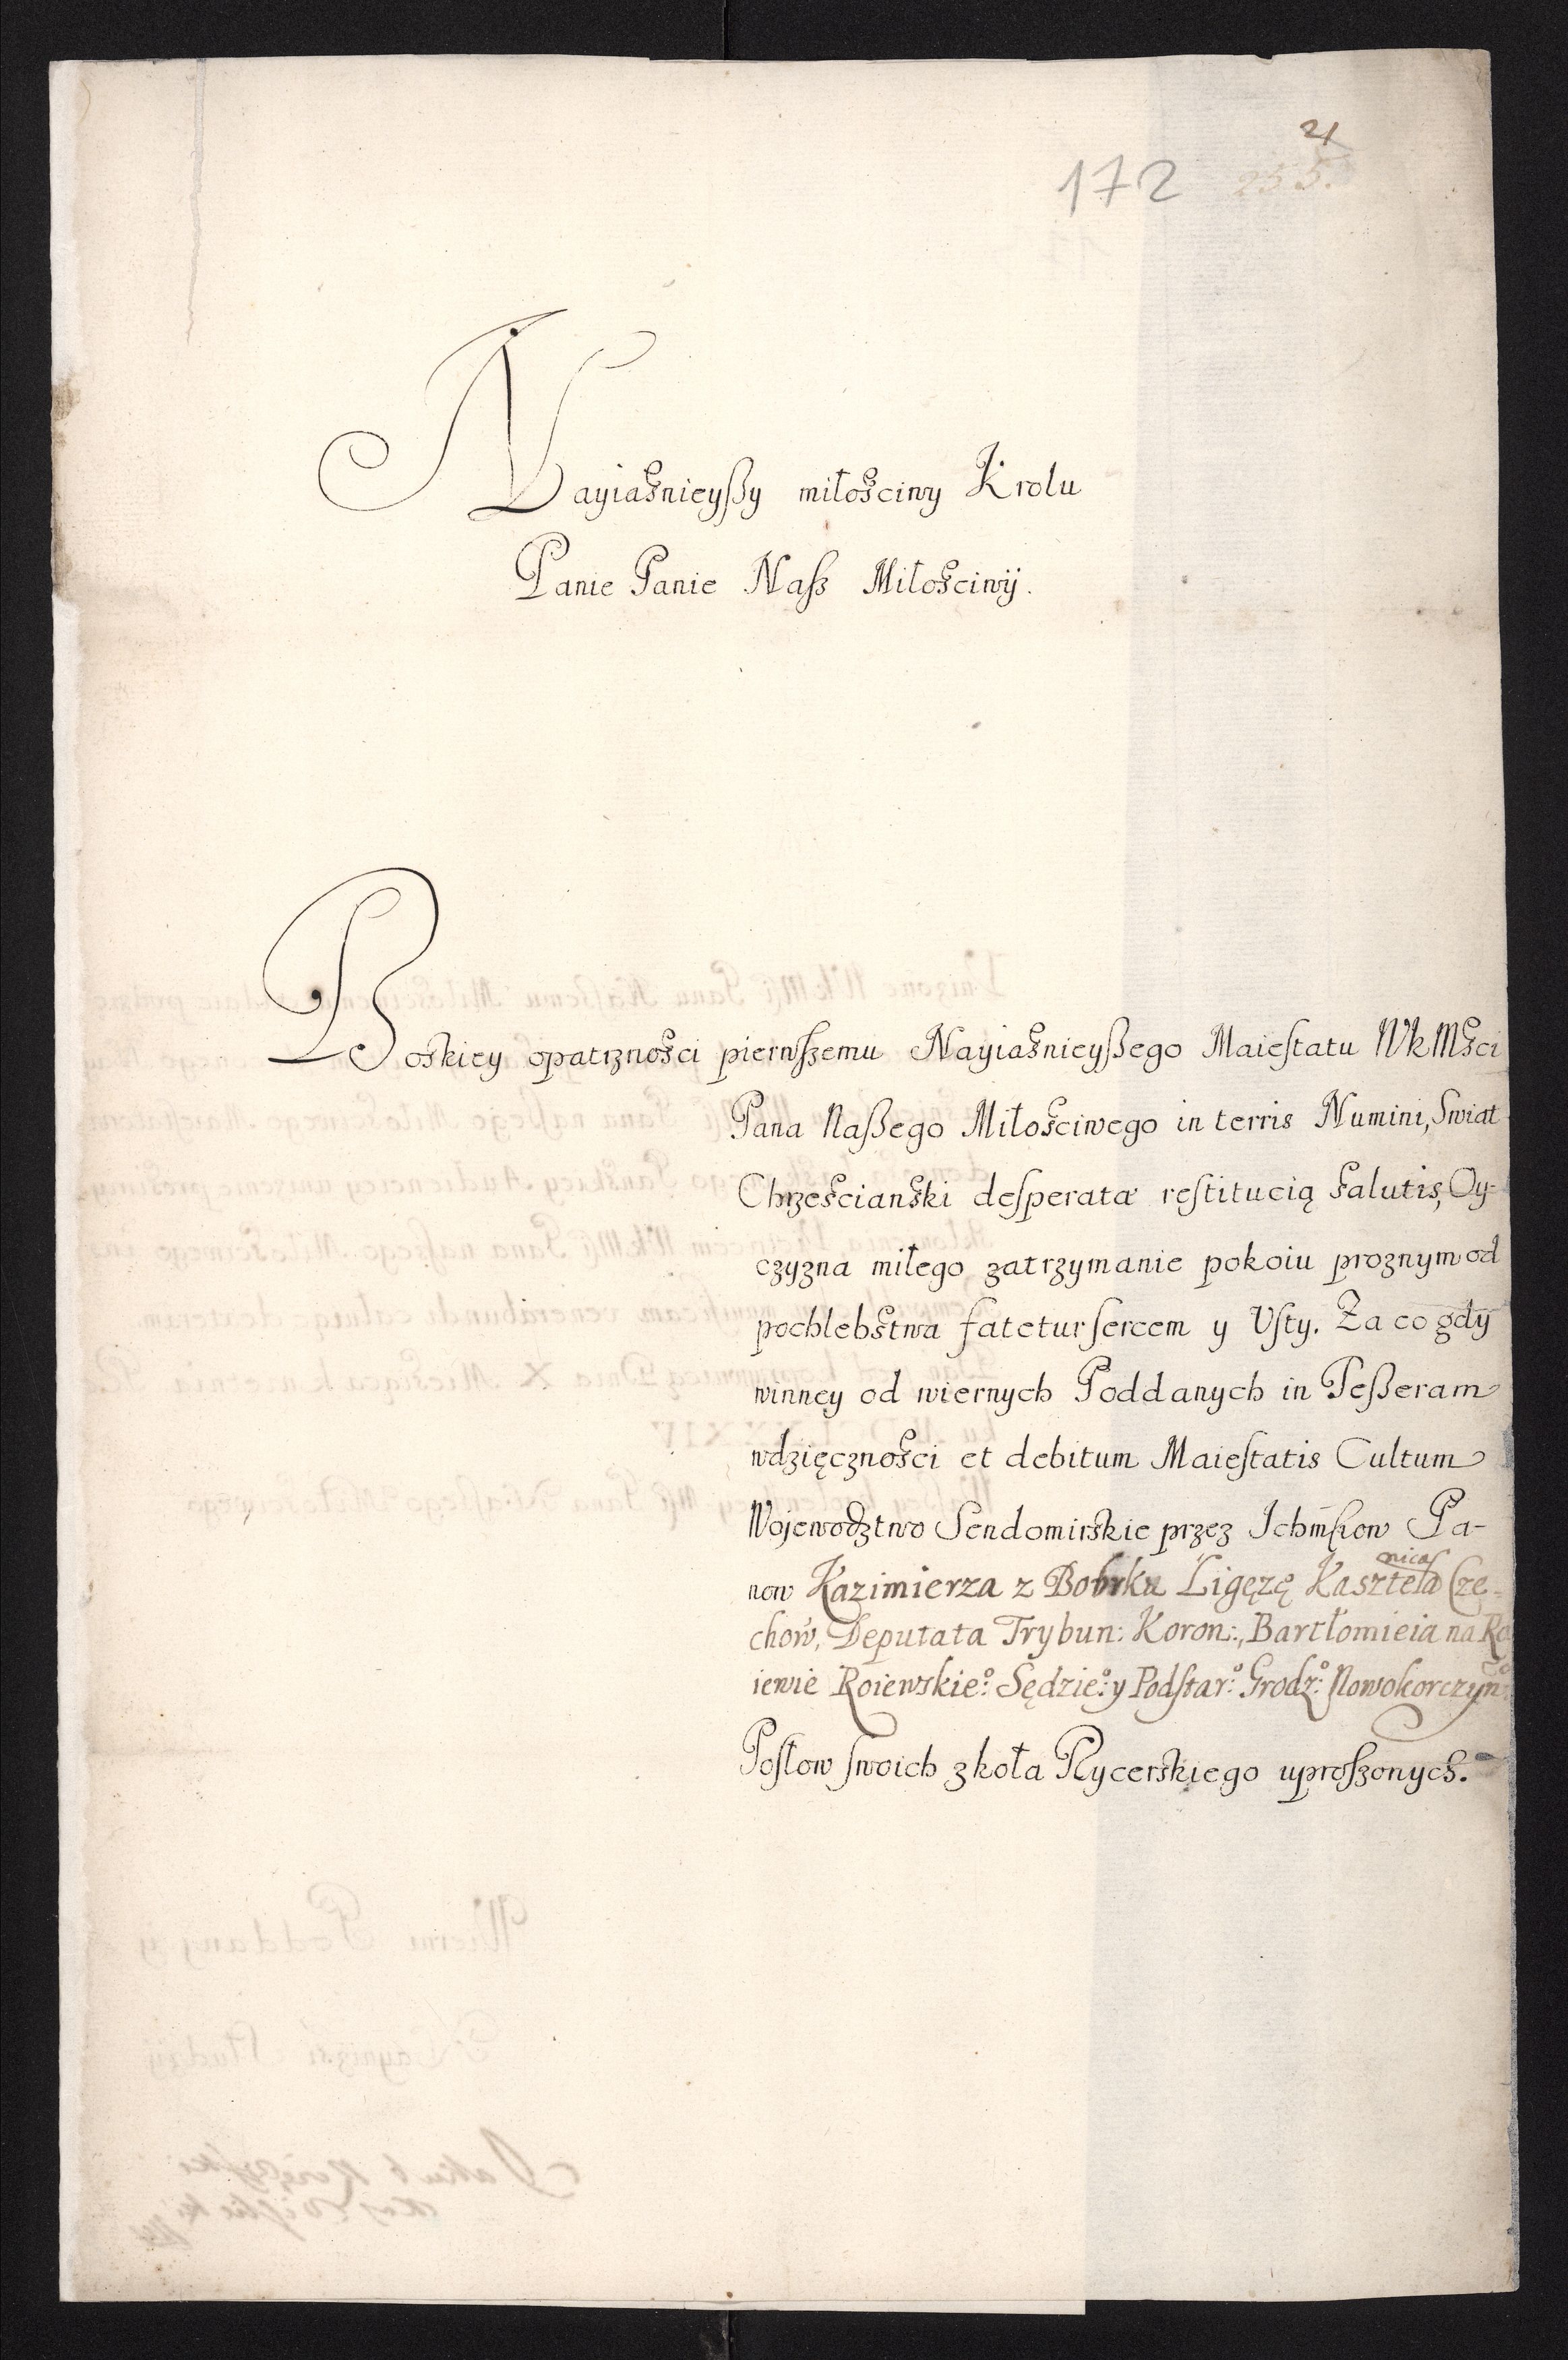 21
172 255.
Nayiaśnieyßy miłościwy Krolu
Panie Panie Nasz Miłościwÿ.
Boskiey opatrzności pierwszemu Nayiaśnieyßego Maiestatu WkMści
Pana Naßego Miłościwego in terris Numini, Swiat
Chrześcianski desperatæ restitucią salutis, Oy-
czyzna miłego zatrzymanie pokoiu proznym od
pochlebstwa fatetur sercem y Usty. Za co gdy
winney od wiernych Poddanych in Teßeram
wdzięczności et debitum Maiestatis Cultum
Wojewodztwo Sendomirskie przez Ichmściow Pa-
nica
now Kazimierza z Bobrku Ligęzę Kasztela Czę-
chow, Deputata Trybun: Koron:, Bartłomieia na Ro
iewie Roiewskieº: Sędzieº: y Podstarº: Grodzº: Nowokorczynº:
Posłow swoich z koła Rycerskiego uproszonych.